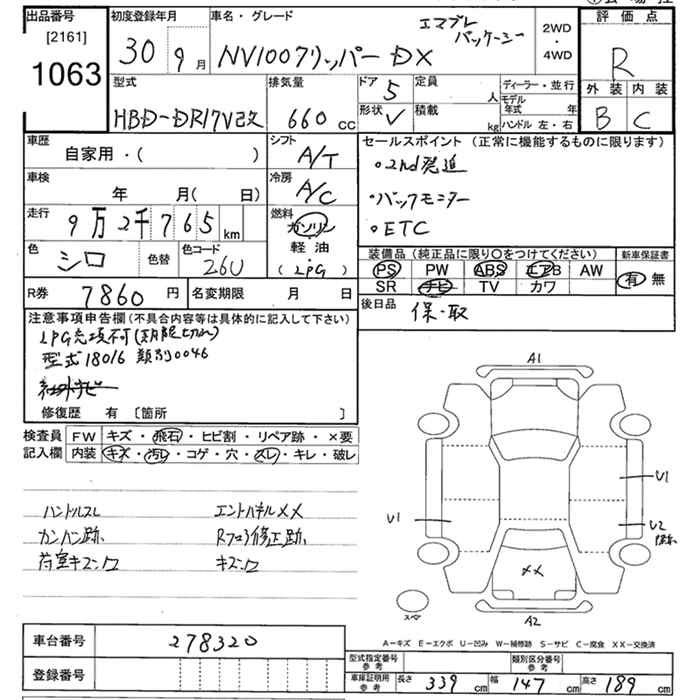 出品番号
[2161]
1063
初度登録年月
30年9月
車名・グレード
NV100クリッパー DX
エマブレ
パッケージ
2WD
・
4WD
評価点
R
外装 内装
B C
型式
HBD-DR17V改
排気量
660 cc
ドア 5
形状 V
定員 人
積載 kg
ディーラー・並行
モデル年式 年
ハンドル 左・右
車歴
自家用・( )
車検
年 月( 日)
走行
9万2千765 km
色
シロ
色替
色コード
26U
シフト
A/T
冷房
A/C
燃料
ガソリン
・
軽油
(LPG)
セールスポイント(正常に機能するものに限ります)
・2nd発進
・バックモニター
・ETC
装備品(純正品に限り〇をつけてください)
PS PW ABS エアB AW
SR ナビ TV カワ
新車保証書
有 無
R券 7860円
名変期限 月 日
後日品
保・取
注意事項申告欄(不具合内容等は具体的に記入して下さい)
LPG充填不可(期限切れ)
型式18016 類別0046
社外ナビ
修復歴 有 〔箇所 〕
検査員
記入欄
FW キズ・飛石・ヒビ割・リペア跡・×要
内装 キズ・汚レ・コゲ・穴・スレ・キレ・破レ
ハンドルスレ
エンドパネルXX
カンバン跡
Rフロア修正跡
荷室キズ・凹
キズ・凹
A1
U1
U1
U2
XX
スペア
A2
A-キズ E-エクボ U-凹み W-補修跡 S-サビ C-腐食 XX-交換済
車台番号 278320
登録番号
型式指定番号
参考
類別区分番号
参考
車庫証明用
参考
長さ 339 cm 幅 147 cm 高さ 189 cm